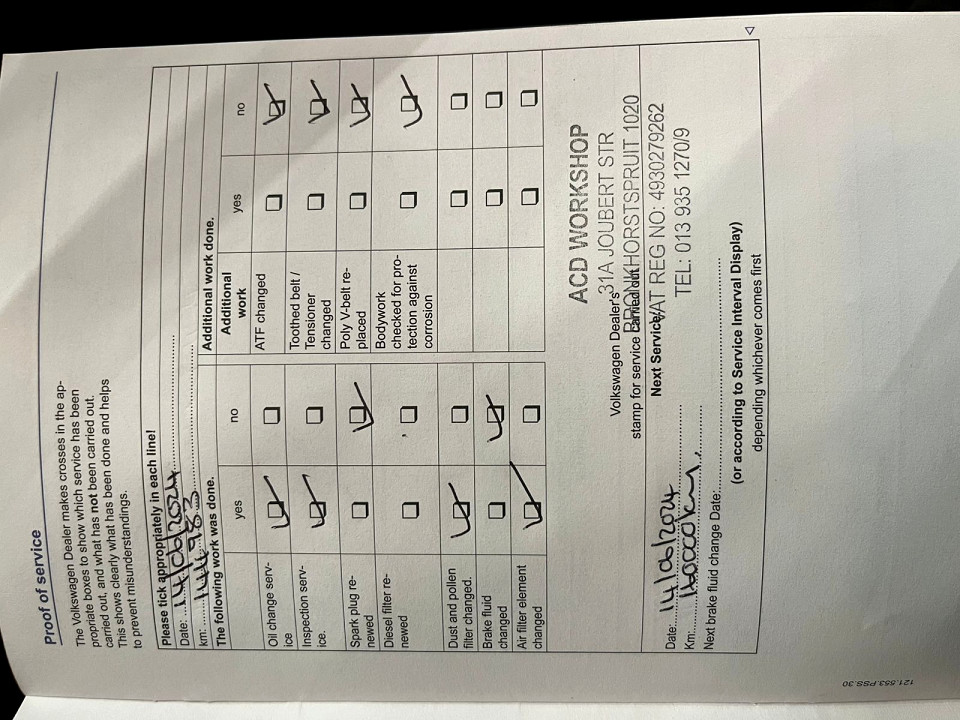 Proof of service
The Volkswagen Dealer makes crosses in the ap-
propriate boxes to show which service has been
carried out, and what has not been carried out.
This shows clearly what has been done and helps
to prevent misunderstandings.
Please tick appropriately in each line!
Date: 14/06/2024
km: 144983
The following work was done.
yes no
Oil change serv-
ice
Inspection serv-
ice.
Spark plug re-
newed
Diesel filter re-
newed
Dust and pollen
filter changed.
Brake fluid
changed
Air filter element
changed
Additional work done.
Additional
work
yes no
ATF changed
Toothed belt /
Tensioner
changed
Poly V-belt re-
placed
Bodywork
checked for pro-
tection against
corrosion
ACD WORKSHOP
31A JOUBERT STR
BRONKHORSTSPRUIT 1020
VAT REG NO: 4930279262
TEL: 013 935 1270/9
Volkswagen Dealer's
stamp for service carried out
Next Service
Date: 14/06/2024
Km:
Next brake fluid change Date:
(or according to Service Interval Display)
depending whichever comes first
121.553.PSS.30